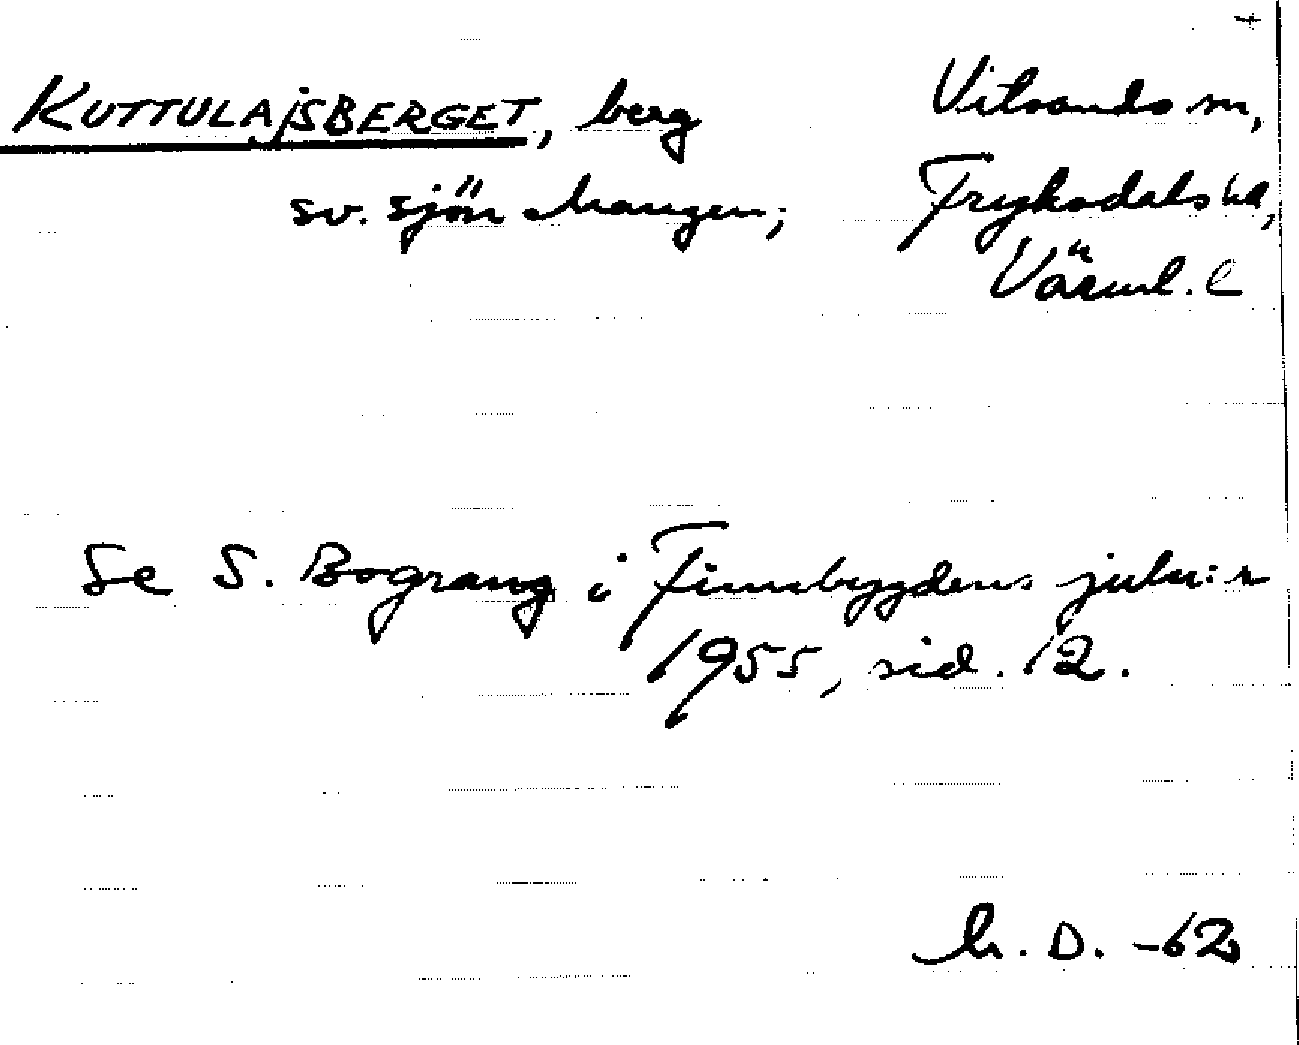 KUTTULAJSBERGET, berg Vitsands sn,
sv. sjön Mangen; Fryksdals hd,
Värml. l
Se S. Bograng i Finnbygdens julnr
1955, sid. 12.
D. -62